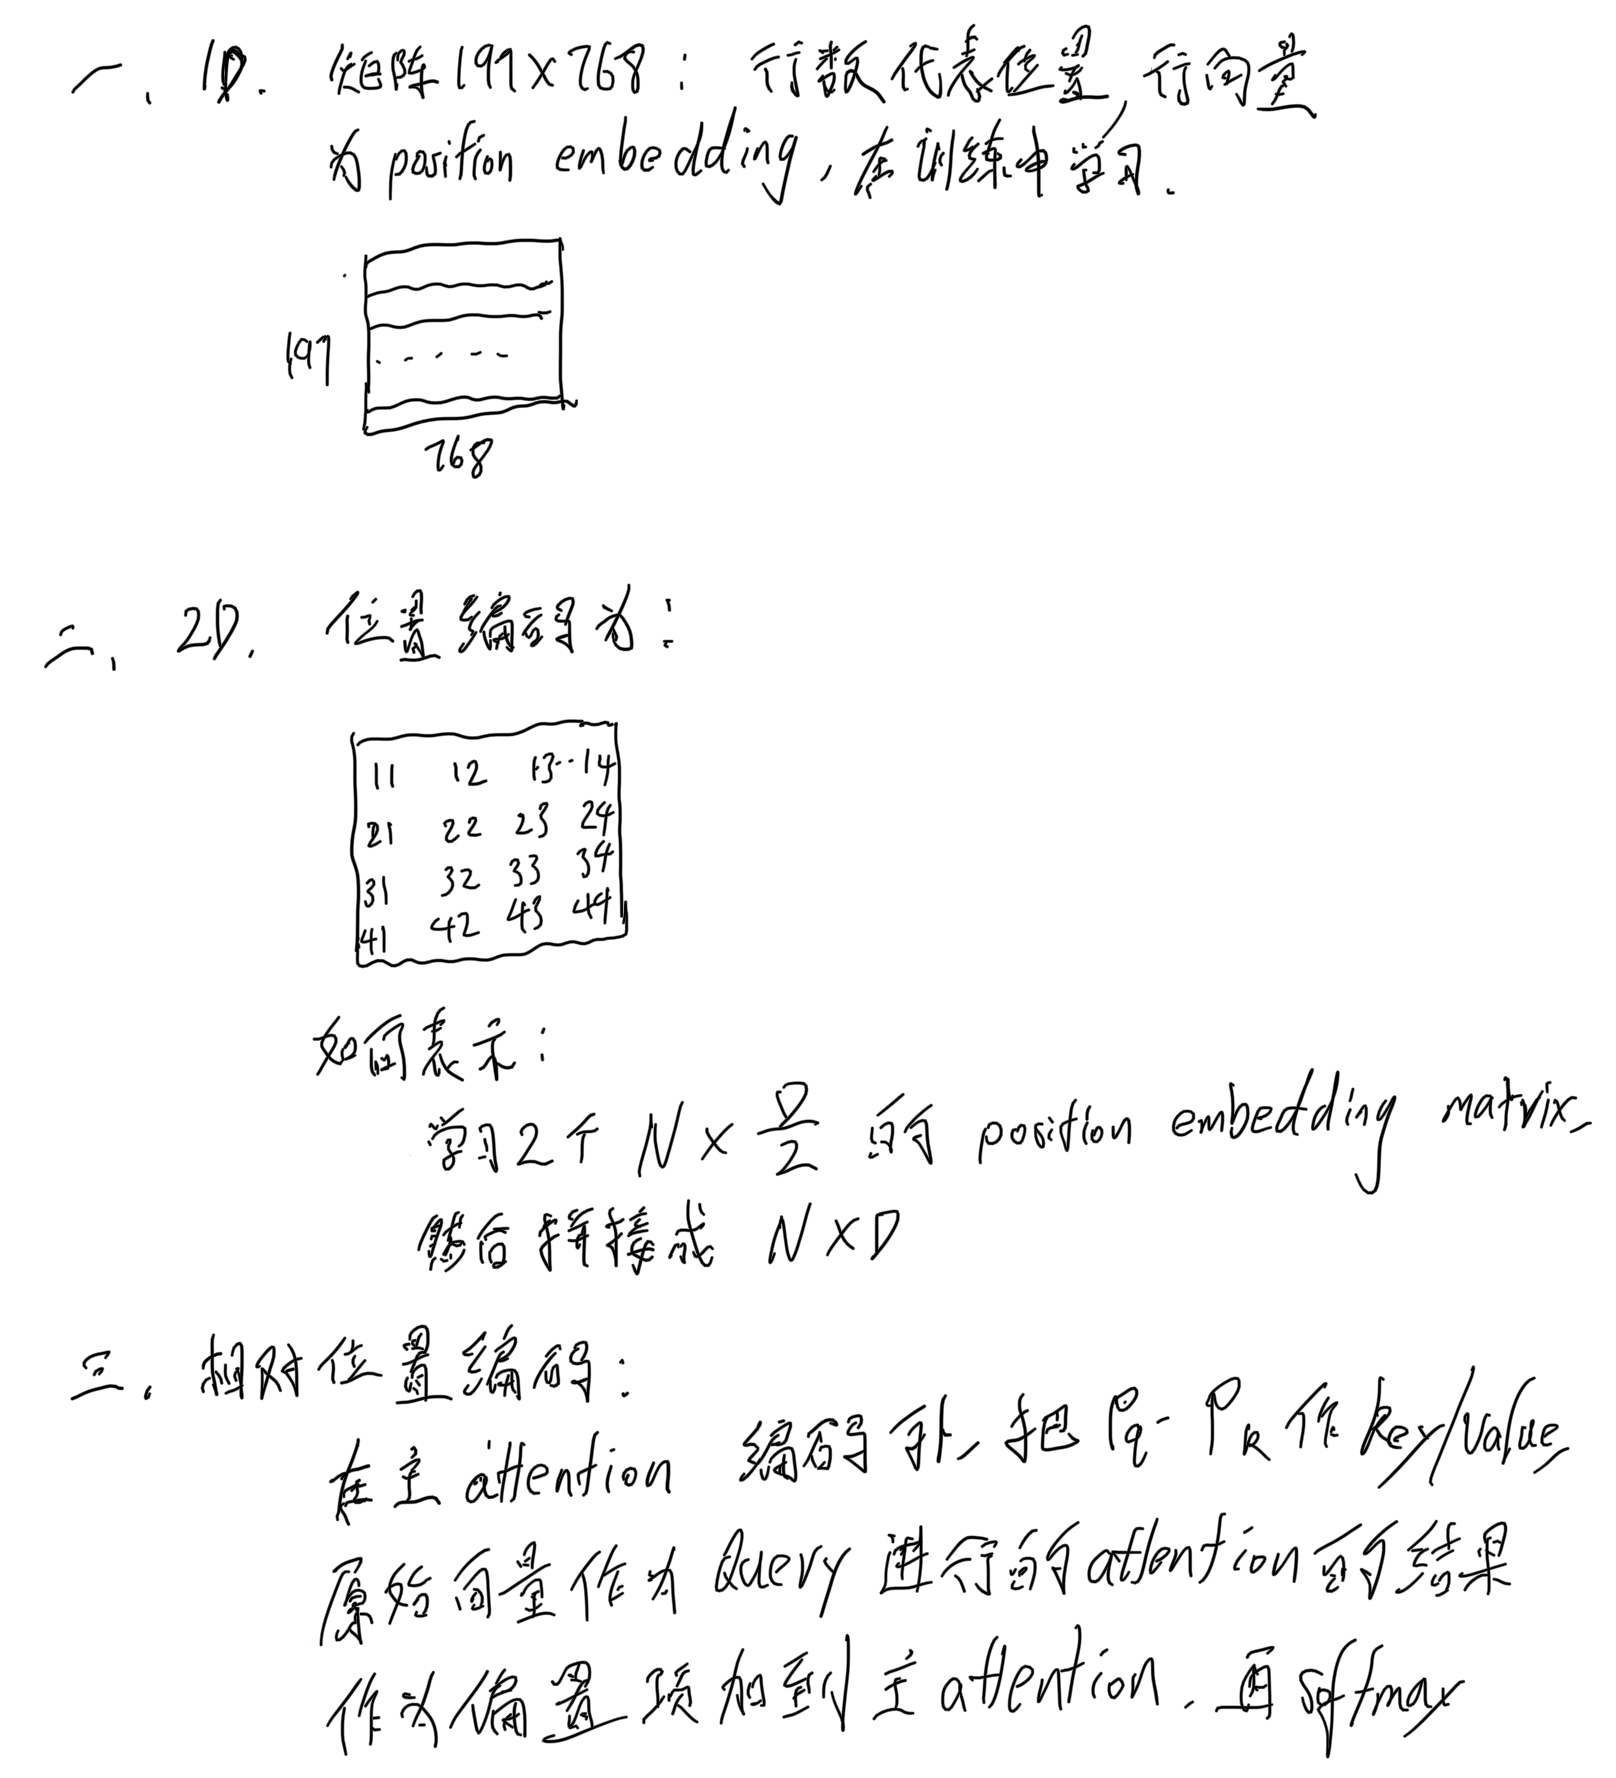 一、1D. 矩阵197×768：行数代表位置，行向量
为position embedding，在训练中学习.
197
768
二、2D. 位置编码为：
11 12 13··14
21 22 23 24
31 32 33 34
41 42 43 44
如何表示：
学习2个 N×D/2 的 position embedding matrix,
然后拼接成 N×D
三、相对位置编码：
在主attention 编码外，把 Pq-Pk 作key/value,
原始向量作为Query进行的attention的结果
作为偏置项加到主attention，再softmax